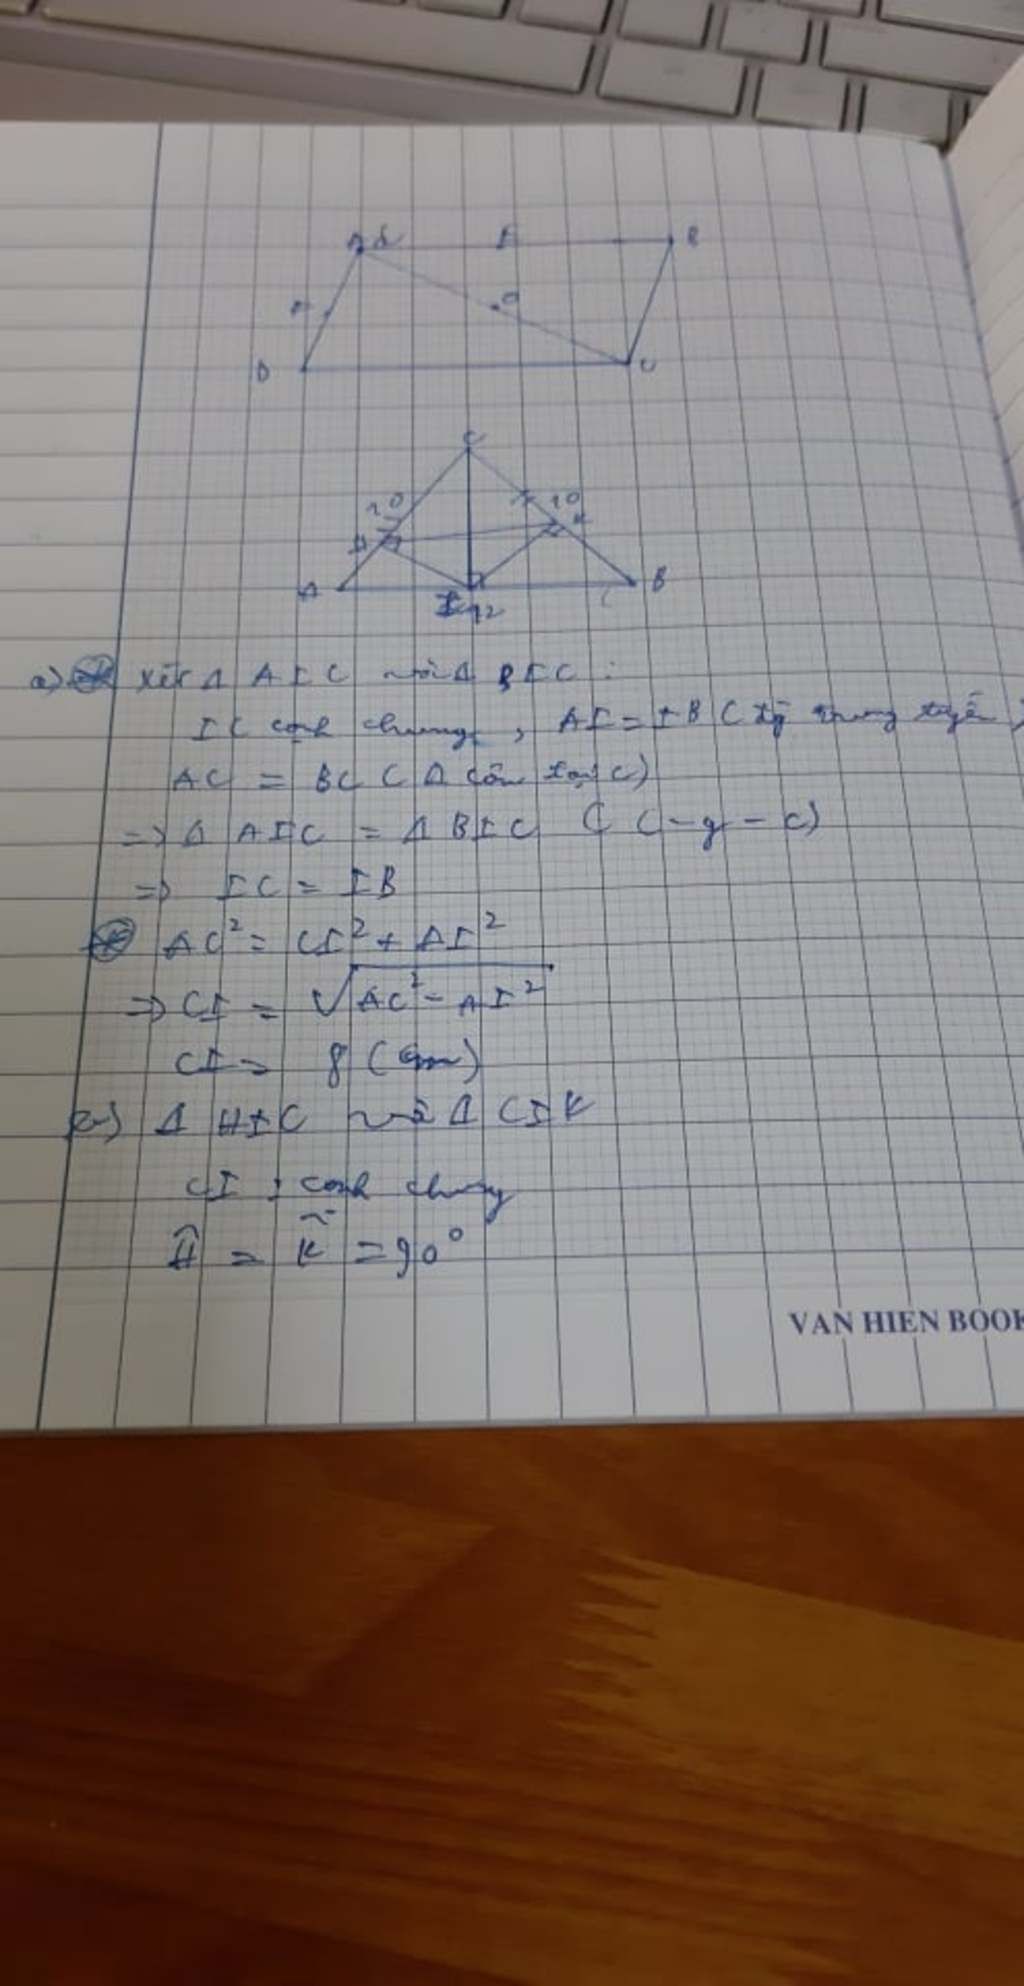 I
B
D
C
C
10
10
H
K
A
I
12
B
a) Xét Δ AIC và Δ BIC :
IC cạnh chung, AI = IB (
AC = BC ( Δ cân tại C)
=> Δ AIC = Δ BIC ( c - g - c)
=> IC = IB
AC² = CI² + AI²
=> CI = √AC² - AI²
CI = 8 (cm)
Δ HIC và Δ CIK
CI : cạnh chung
Ĥ = K̂ = 90°
VAN HIEN BOOK